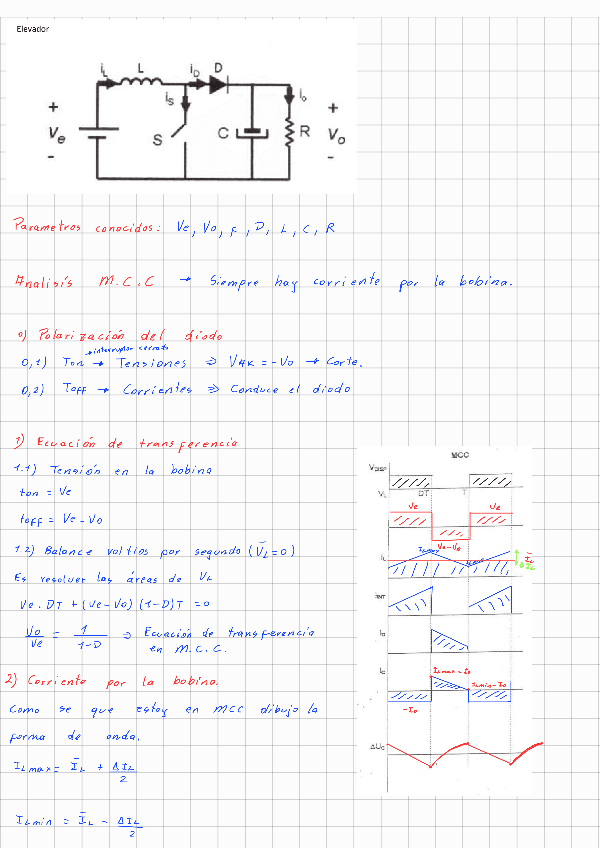 Elevador
iL L iD D
iS io
+ Ve - S C R + Vo -
Parametros conocidos: Ve, Vo, F, D, L, C, R
Analisis M.C.C → Siempre hay corriente por la bobina.
0) Polarización del diodo
→ interruptor cerrado
0,1) Ton → Tensiones ⇒ VAK = -Vo → Corte.
0,2) Toff → Corrientes ⇒ Conduce el diodo
1) Ecuación de transferencia
1.1) Tensión en la bobina
ton = Ve
toff = Ve - Vo
1.2) Balance voltios por segundo (V̄L = 0)
Es resolver las áreas de VL
Ve · DT + (Ve - Vo) (1-D)T = 0
Vo/Ve = 1/(1-D) ⇒ Ecuación de transferencia
en M.C.C.
2) Corriente por la bobina.
Como se que estoy en MCC dibujo la
forma de onda.
ILmax = ĪL + ΔIL/2
ILmin = ĪL - ΔIL/2
MCC
VDISP
VL DT T
Ve Ve
Ve-Vo
iL ILmax ĪL
ΔIL
iINT
iD
iC ILmax - Io
ILmin - Io
-Io
ΔUC